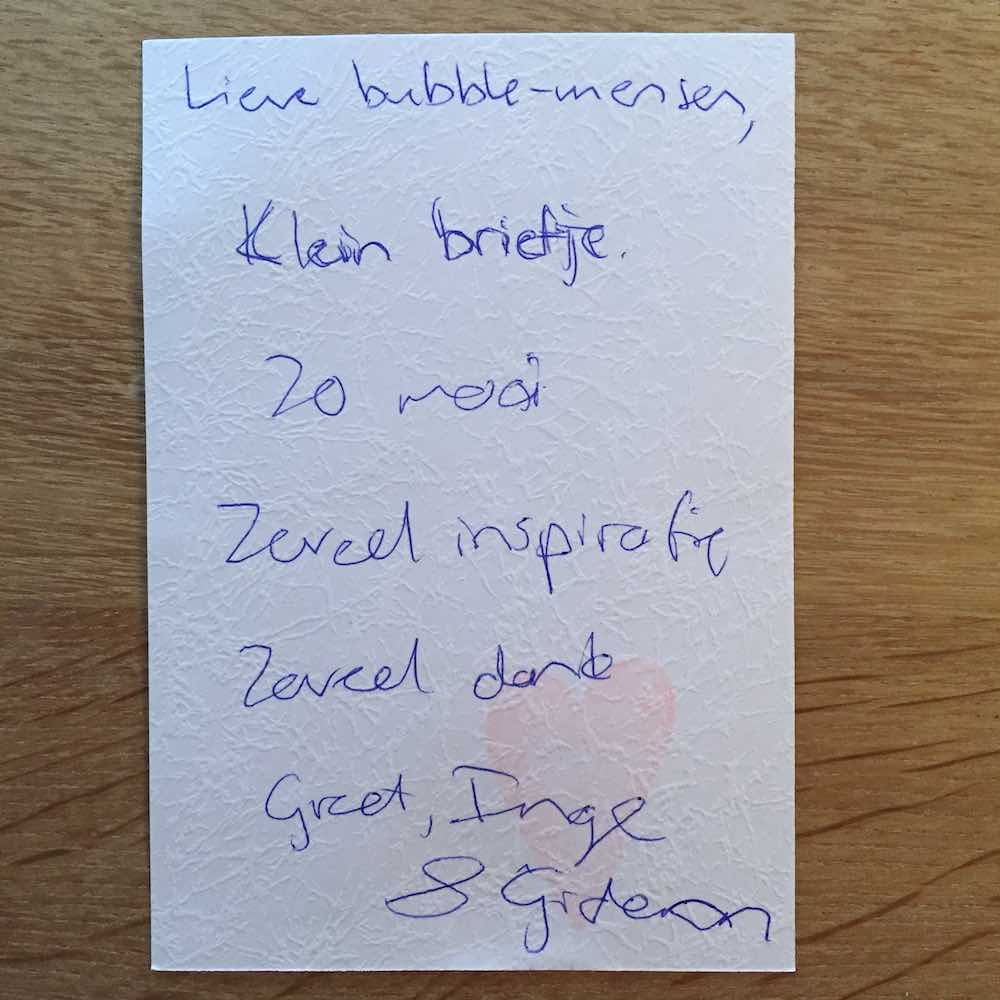 Lieve bubble-mensen,
Klein briefje.
Zo mooi
Zoveel inspiratie
Zoveel dank
Groet, Inge
& Gideon